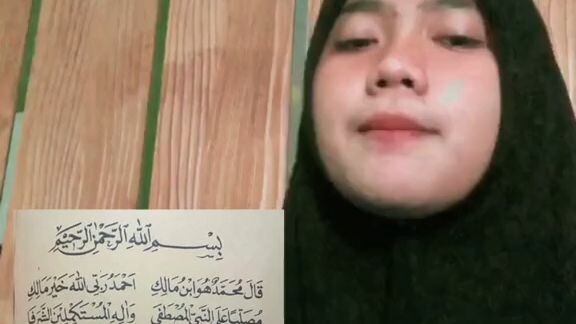 بِسْمِ اللهِ الرَّحْمٰنِ الرَّحِيْمِ
قَالَ مُحَمَّدٌ هُوَ ابْنُ مَالِكِ اَحْمَدُ رَبِّى اللهَ خَيْرَ مَالِكِ
مُصَلِّيًا عَلَى النَّبِيِّ الْمُصْطَفَى وَاٰلِهِ الْمُسْتَكْمِلِيْنَ الشَّرَفَا